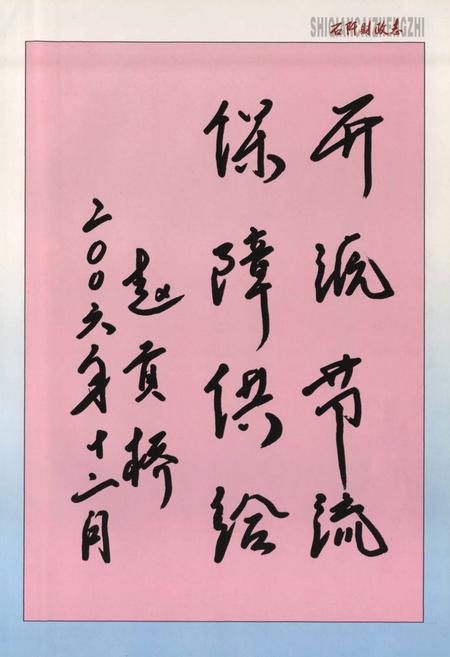 石阡财政志
SHIQIANCAIZHENGZHI
开源节流
保障供给
赵贡桥
二〇〇六年十二月